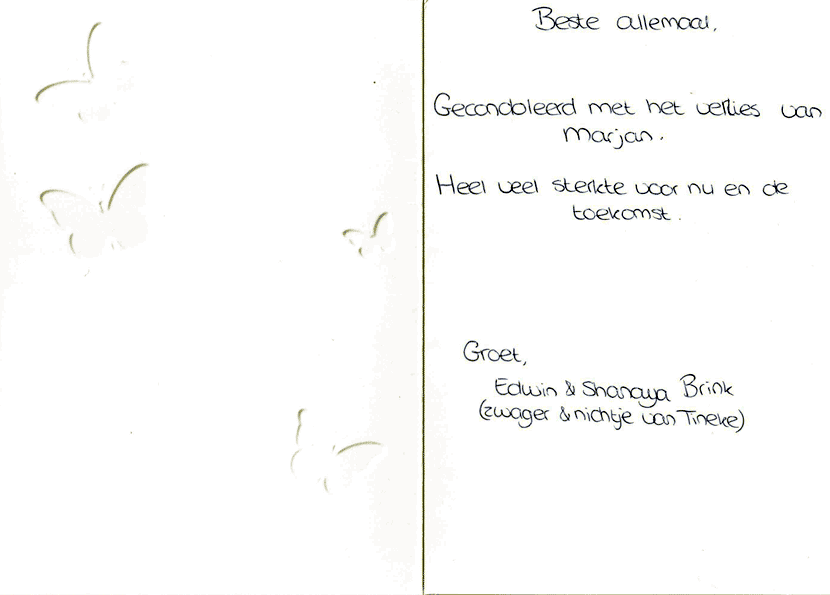 Beste allemaal,
Gecondoleerd met het verlies van
Marjan.
Heel veel sterkte voor nu en de
toekomst.
Groet,
Edwin & Shanaya Brink
(zwager & nichtje van Tineke)